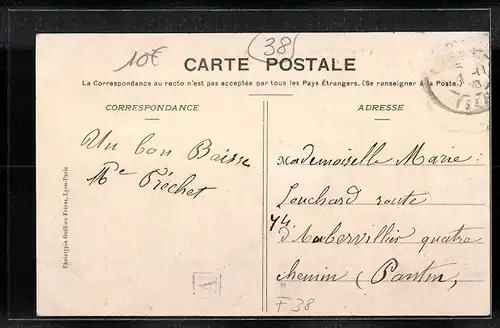 10€
38
CARTE POSTALE
La Correspondance au recto n'est pas acceptée par tous les Pays Étrangers. (Se renseigner à la Poste.)
CORRESPONDANCE
Un bon Baisse
Me Fréchet
Phototypie Guillion Frères, Lyon-Paris
ADRESSE
Mademoiselle Marie
Louchard route
44
d'Aubervillier quatre
chemin (Pantin,
F 38